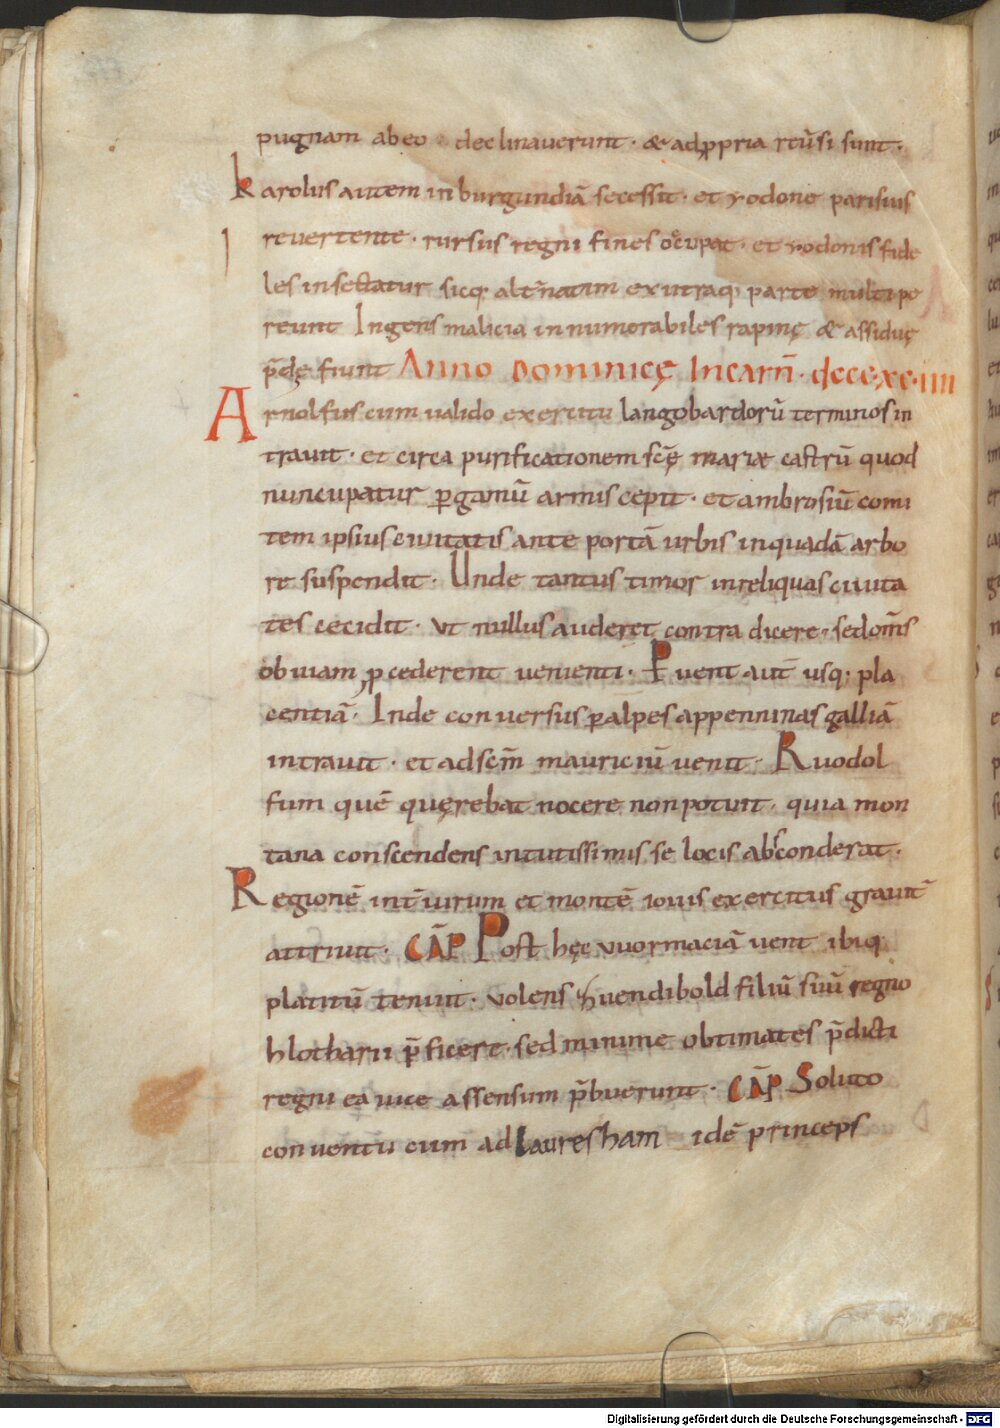 pugnam ab eo declinauerunt · & ad ꝓpria reūsi sunt ·
Karolus autem in burgundiā secessit · et rodone parisius
revertente · rursus regni fines occupat · et rodonis fide
les insectatur sicq; altn̄atim ex utraq; parte multi pe
reunt Ingens malicia innumorabiles rapinę & assiduę
p̄dę fiunt Anno Dominicę Incarn̄ · dccc · xc · iiii
Arnolfus cum valido exercitu langobardorū terminos in
trauit · et circa purificationem scę̄ mariæ castrū quod
nuncupatur ꝑgamū armis cepit · et ambrosiū comi
tem ipsius ciuitatis ante portā urbis in quadā arbo
re suspendit · Unde tantus timor in reliquas ciuita
tes cecidit · vt nullus auderet contra dicere · sed om̄s
obuiam ꝓcederent uenienti · Puenit aut̄ usq; pla
centiā · Inde conuersus ꝑ alpes appenninas galliā
intrauit · et ad scm̄ mauriciū uenit · Ruodol
fum quē quęrebat nocere non potuit · quia mon
tana conscendens in tutissimis se locis absconderat ·
Regionē int̄ iurum et montē iouis exercitus grauit̄
attriuit · CAP̄ Post hęc vuormaciā uenit ibiq;
platitū tenuit · volens huendibold filiū suū regno
hlotharii p̄ficere · sed minime obtimates p̄dicti
regni ea uice assensum p̄buerunt · CAP̄ Soluto
conuentu cum ad Lauresham idē princeps
Digitalisierung gefördert durch die Deutsche Forschungsgemeinschaft - DFG